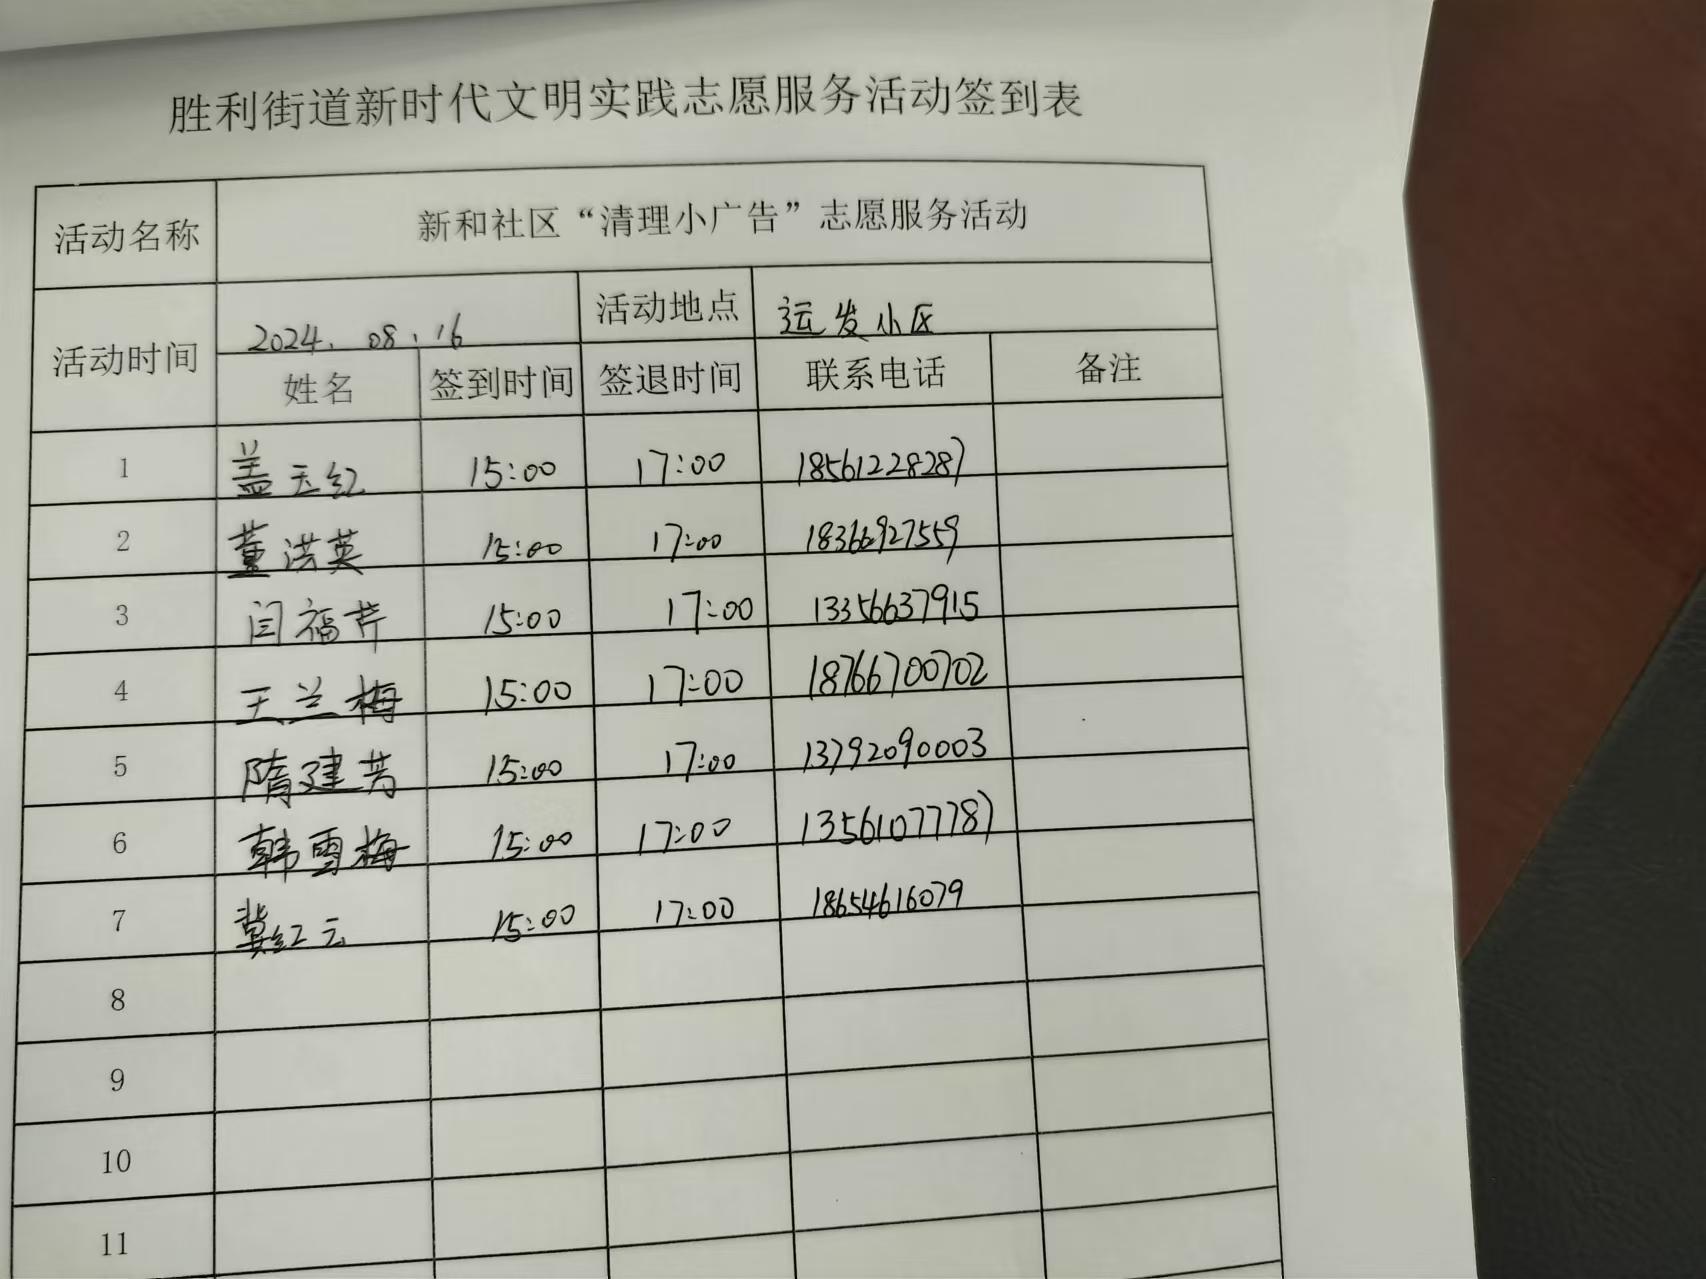 胜利街道新时代文明实践志愿服务活动签到表
活动名称 新和社区“清理小广告”志愿服务活动
活动时间 2024.08.16 活动地点 运发小区
姓名 签到时间 签退时间 联系电话 备注
1 盖玉红 15:00 17:00 18561228287
2 董洪英 15:00 17:00 18366927559
3 闫福芹 15:00 17:00 13356637915
4 王兰梅 15:00 17:00 18766700702
5 隋建芳 15:00 17:00 13792090003
6 韩雪梅 15:00 17:00 13561077787
7 冀红云 15:00 17:00 18654616079
8
9
10
11